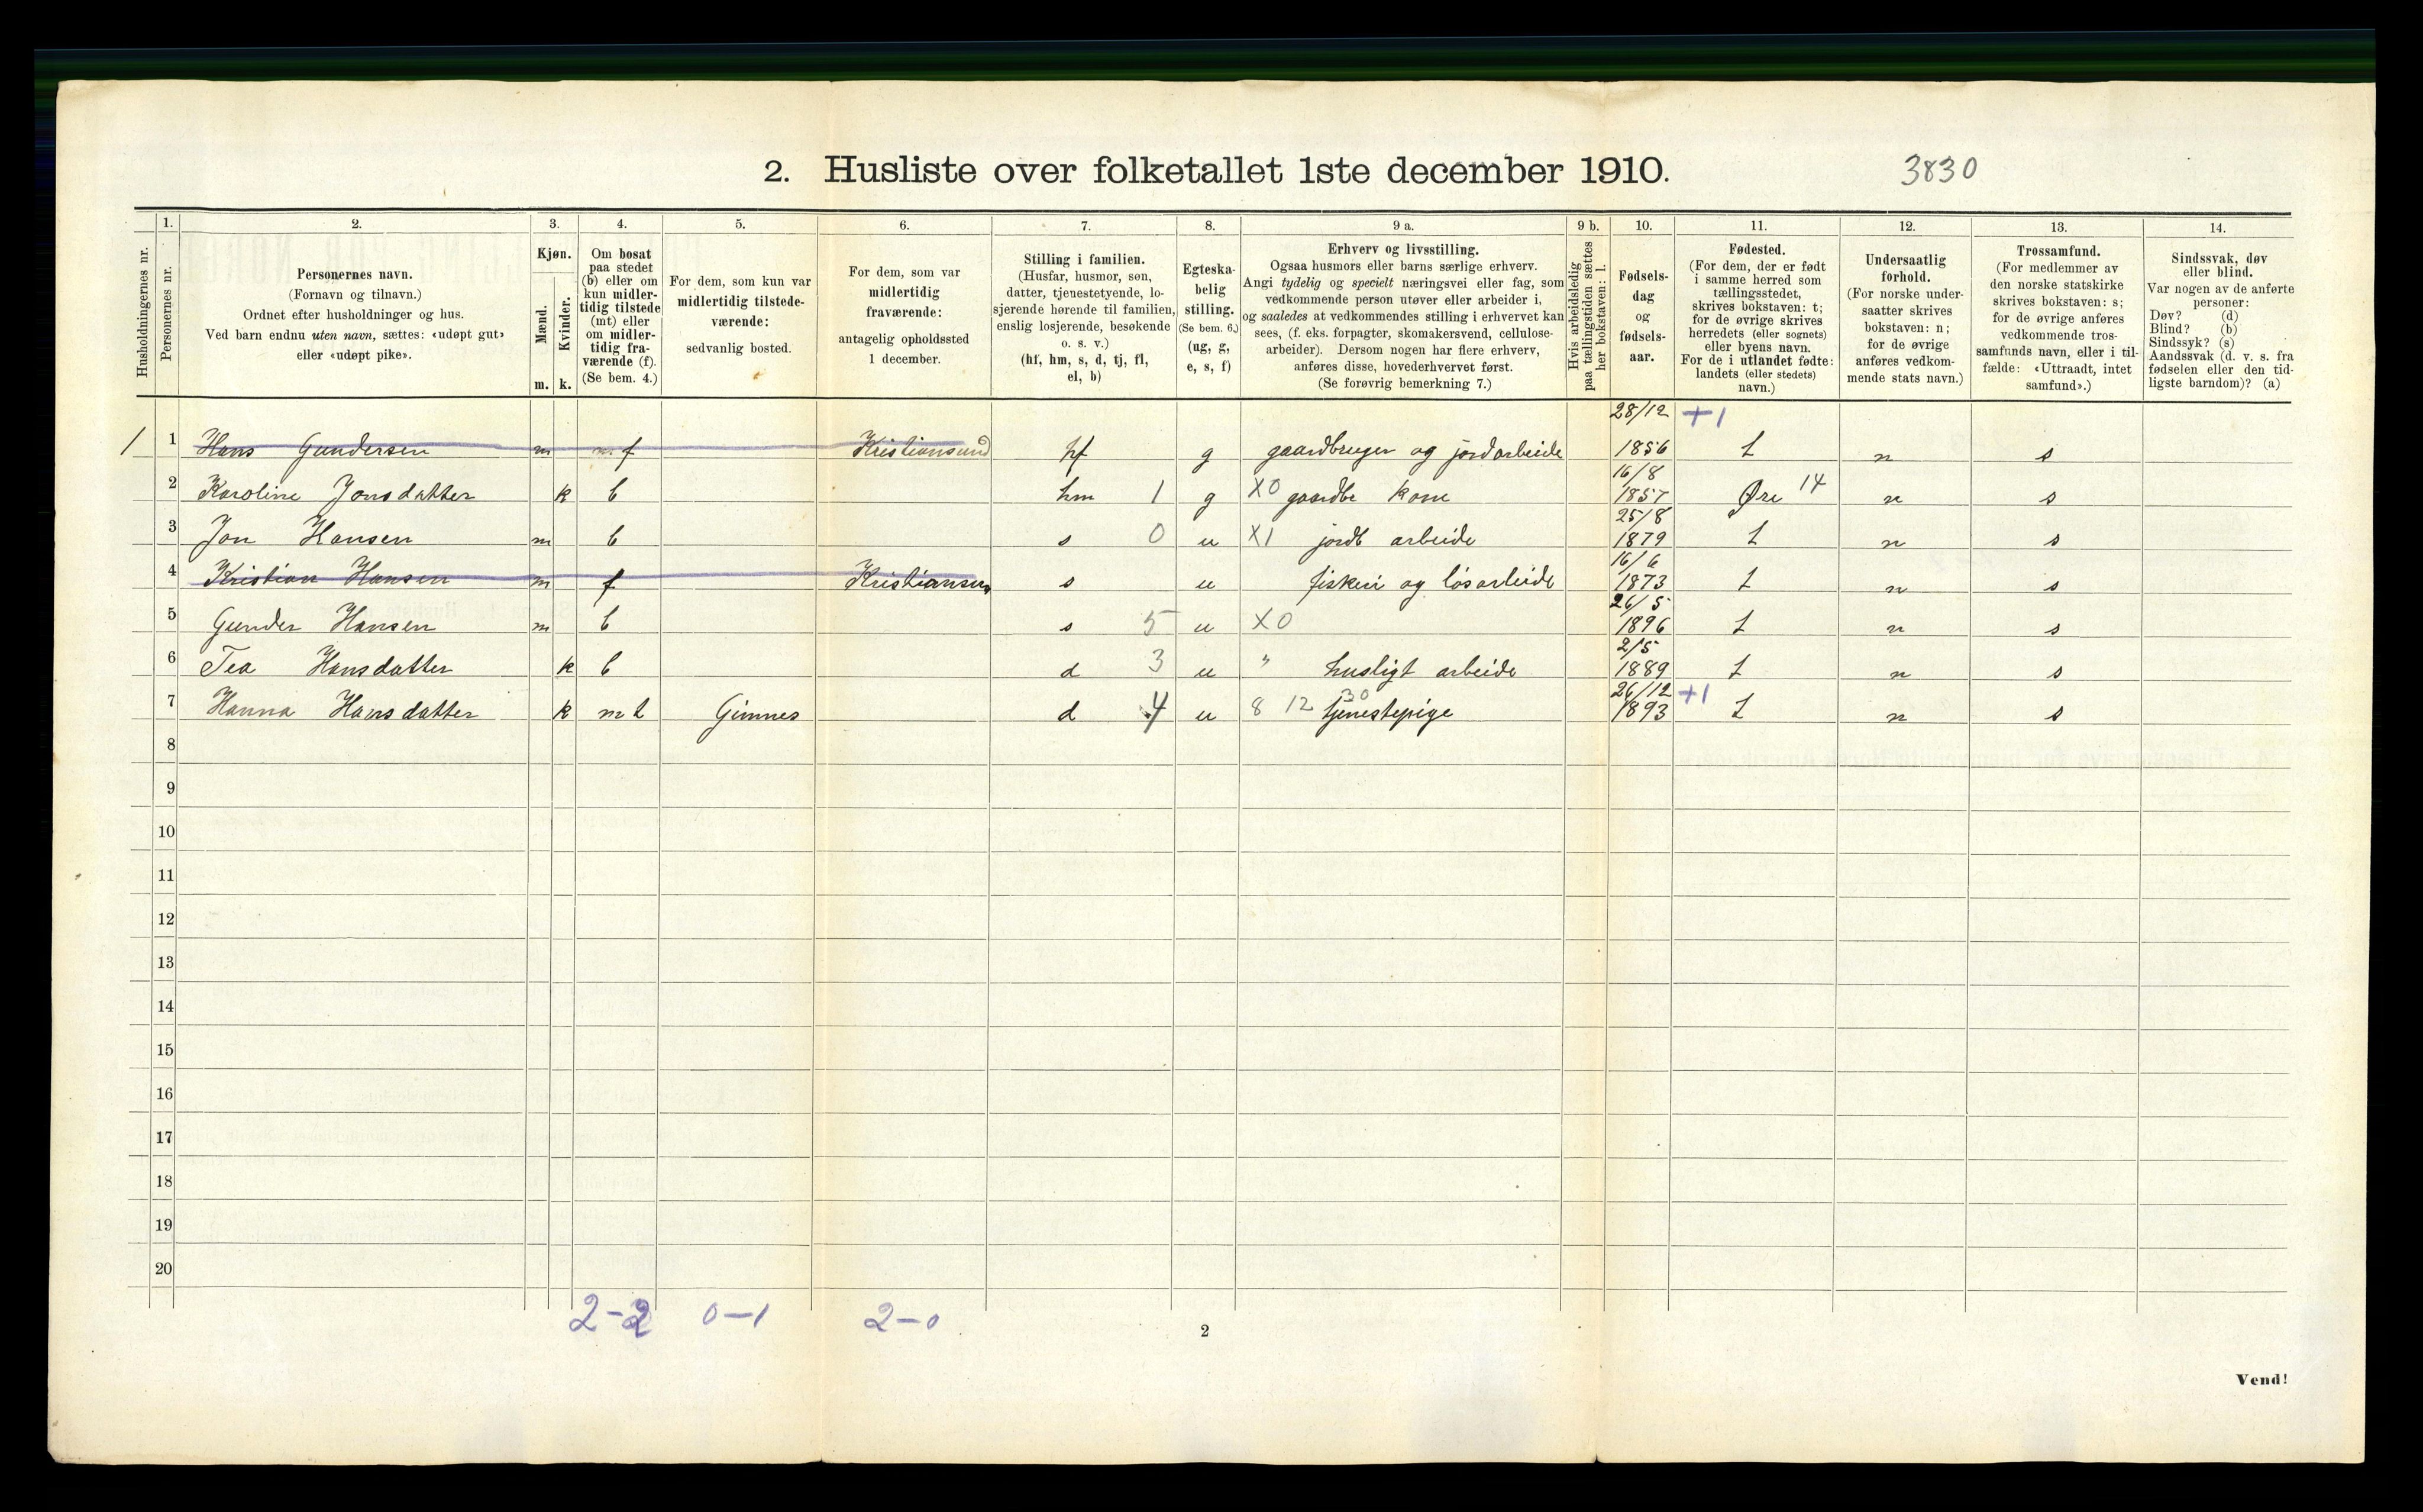 2. Husliste over folketallet 1ste december 1910.
3830
Husholdningernes nr.
1.
Personernes nr.
2.
Personernes navn.
(Fornavn og tilnavn.)
Ordnet efter husholdninger og hus.
Ved barn endnu uten navn, sættes: «udøpt gut»
eller «udøpt pike».
3.
Kjøn.
Mænd.
Kvinder.
m. k.
4.
Om bosat
paa stedet
(b) eller om
kun midler-
tidig tilstede
(mt) eller
om midler-
tidig fra-
værende (f).
(Se bem. 4.)
5.
For dem, som kun var
midlertidig tilstede-
værende:
sedvanlig bosted.
6.
For dem, som var
midlertidig
fraværende:
antagelig opholdssted
1 december.
7.
Stilling i familien.
(Husfar, husmor, søn,
datter, tjenestetyende, lo-
sjerende hørende til familien,
enslig losjerende, besøkende
o. s. v.)
(hf, hm, s, d, tj, fl,
el, b)
8.
Egteska-
belig
stilling.
(Se bem. 6.)
(ug, g,
e, s, f)
9 a.
Erhverv og livsstilling.
Ogsaa husmors eller barns særlige erhverv.
Angi tydelig og specielt næringsvei eller fag, som
vedkommende person utøver eller arbeider i,
og saaledes at vedkommendes stilling i erhvervet kan
sees, (f. eks. forpagter, skomakersvend, cellulose-
arbeider). Dersom nogen har flere erhverv,
anføres disse, hovederhvervet først.
(Se forøvrig bemerkning 7.)
9 b.
Hvis arbeidsledig
paa tællingstiden sættes
her bokstaven: l.
10.
Fødsels-
dag
og
fødsels-
aar.
11.
Fødested.
(For dem, der er født
i samme herred som
tællingsstedet,
skrives bokstaven: t;
for de øvrige skrives
herredets (eller sognets)
eller byens navn.
For de i utlandet fødte:
landets (eller stedets)
navn.)
12.
Undersaatlig
forhold.
(For norske under-
saatter skrives
bokstaven: n;
for de øvrige
anføres vedkom-
mende stats navn.)
13.
Trossamfund.
(For medlemmer av
den norske statskirke
skrives bokstaven: s;
for de øvrige anføres
vedkommende tros-
samfunds navn, eller i til-
fælde: «Uttraadt, intet
samfund».)
14.
Sindssvak, døv
eller blind.
Var nogen av de anførte
personer:
Døv? (d)
Blind? (b)
Sindssyk? (s)
Aandssvak (d. v. s. fra
fødselen eller den tid-
ligste barndom)? (a)
1 1 Hans Gundersen m f Kristiansund hf g gaardbruger og jordarbeide 28/12 1856 +1 t n s
2 Karoline Jonsdatter k b hm 1 g X0 gaardbr kone 16/8 1857 Øre 14 n s
3 Jon Hansen m b s 0 u X1 jordb arbeide 25/8 1879 t n s
4 Kristian Hansen m f Kristiansun s u fiskeri og løsarbeide 16/6 1873 t n s
5 Gunder Hansen m b s 5 u X0 26/5 1896 t n s
6 Tea Hansdatter k b d 3 u " husligt arbeide 2/5 1889 t n s
7 Hanna Hansdatter k mt Gimnes d 4 u 8 12 30 tjenestepige 26/12 1893 +1 t n s
8
9
10
11
12
13
14
15
16
17
18
19
20
2-2 0-1 2-0
2
Vend!